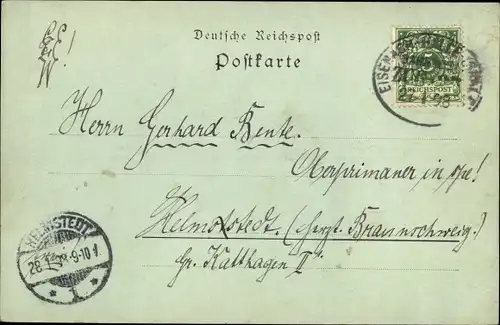 Deutsche Reichspost
Postkarte
REICHSPOST
27.1.98
Herrn Gerhard Bente.
Oberprimaner in spe!
Helmstedt. (Herzgt. Braunschweig.)
Gr. Kalthagen II
HELMSTEDT
28.1. 9-10 V.
1